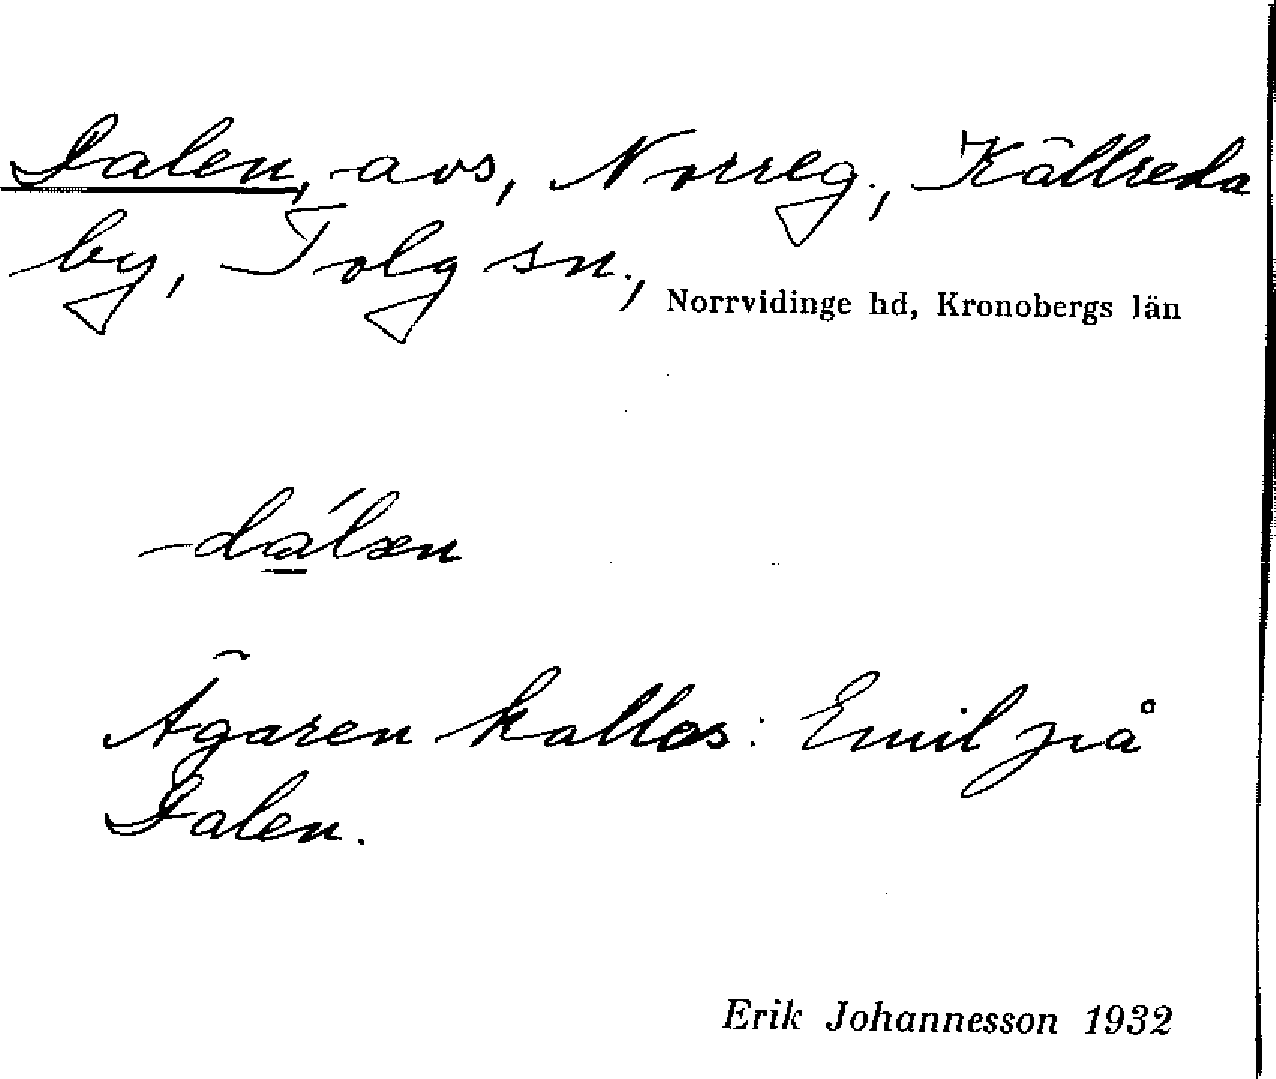 Dalen, avs, Norreg., Källreda
by, Tolg sn., Norrvidinge hd, Kronobergs län
-dálæn
Ägaren kallas: Emil på
Dalen.
Erik Johannesson 1932